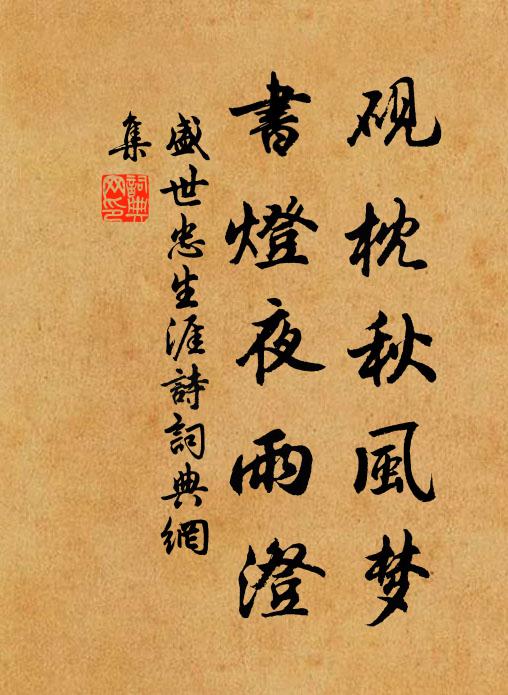 砚枕秋風梦
書燈夜雨澄
盛世忠生涯詩詞典網
集
詞典
网印